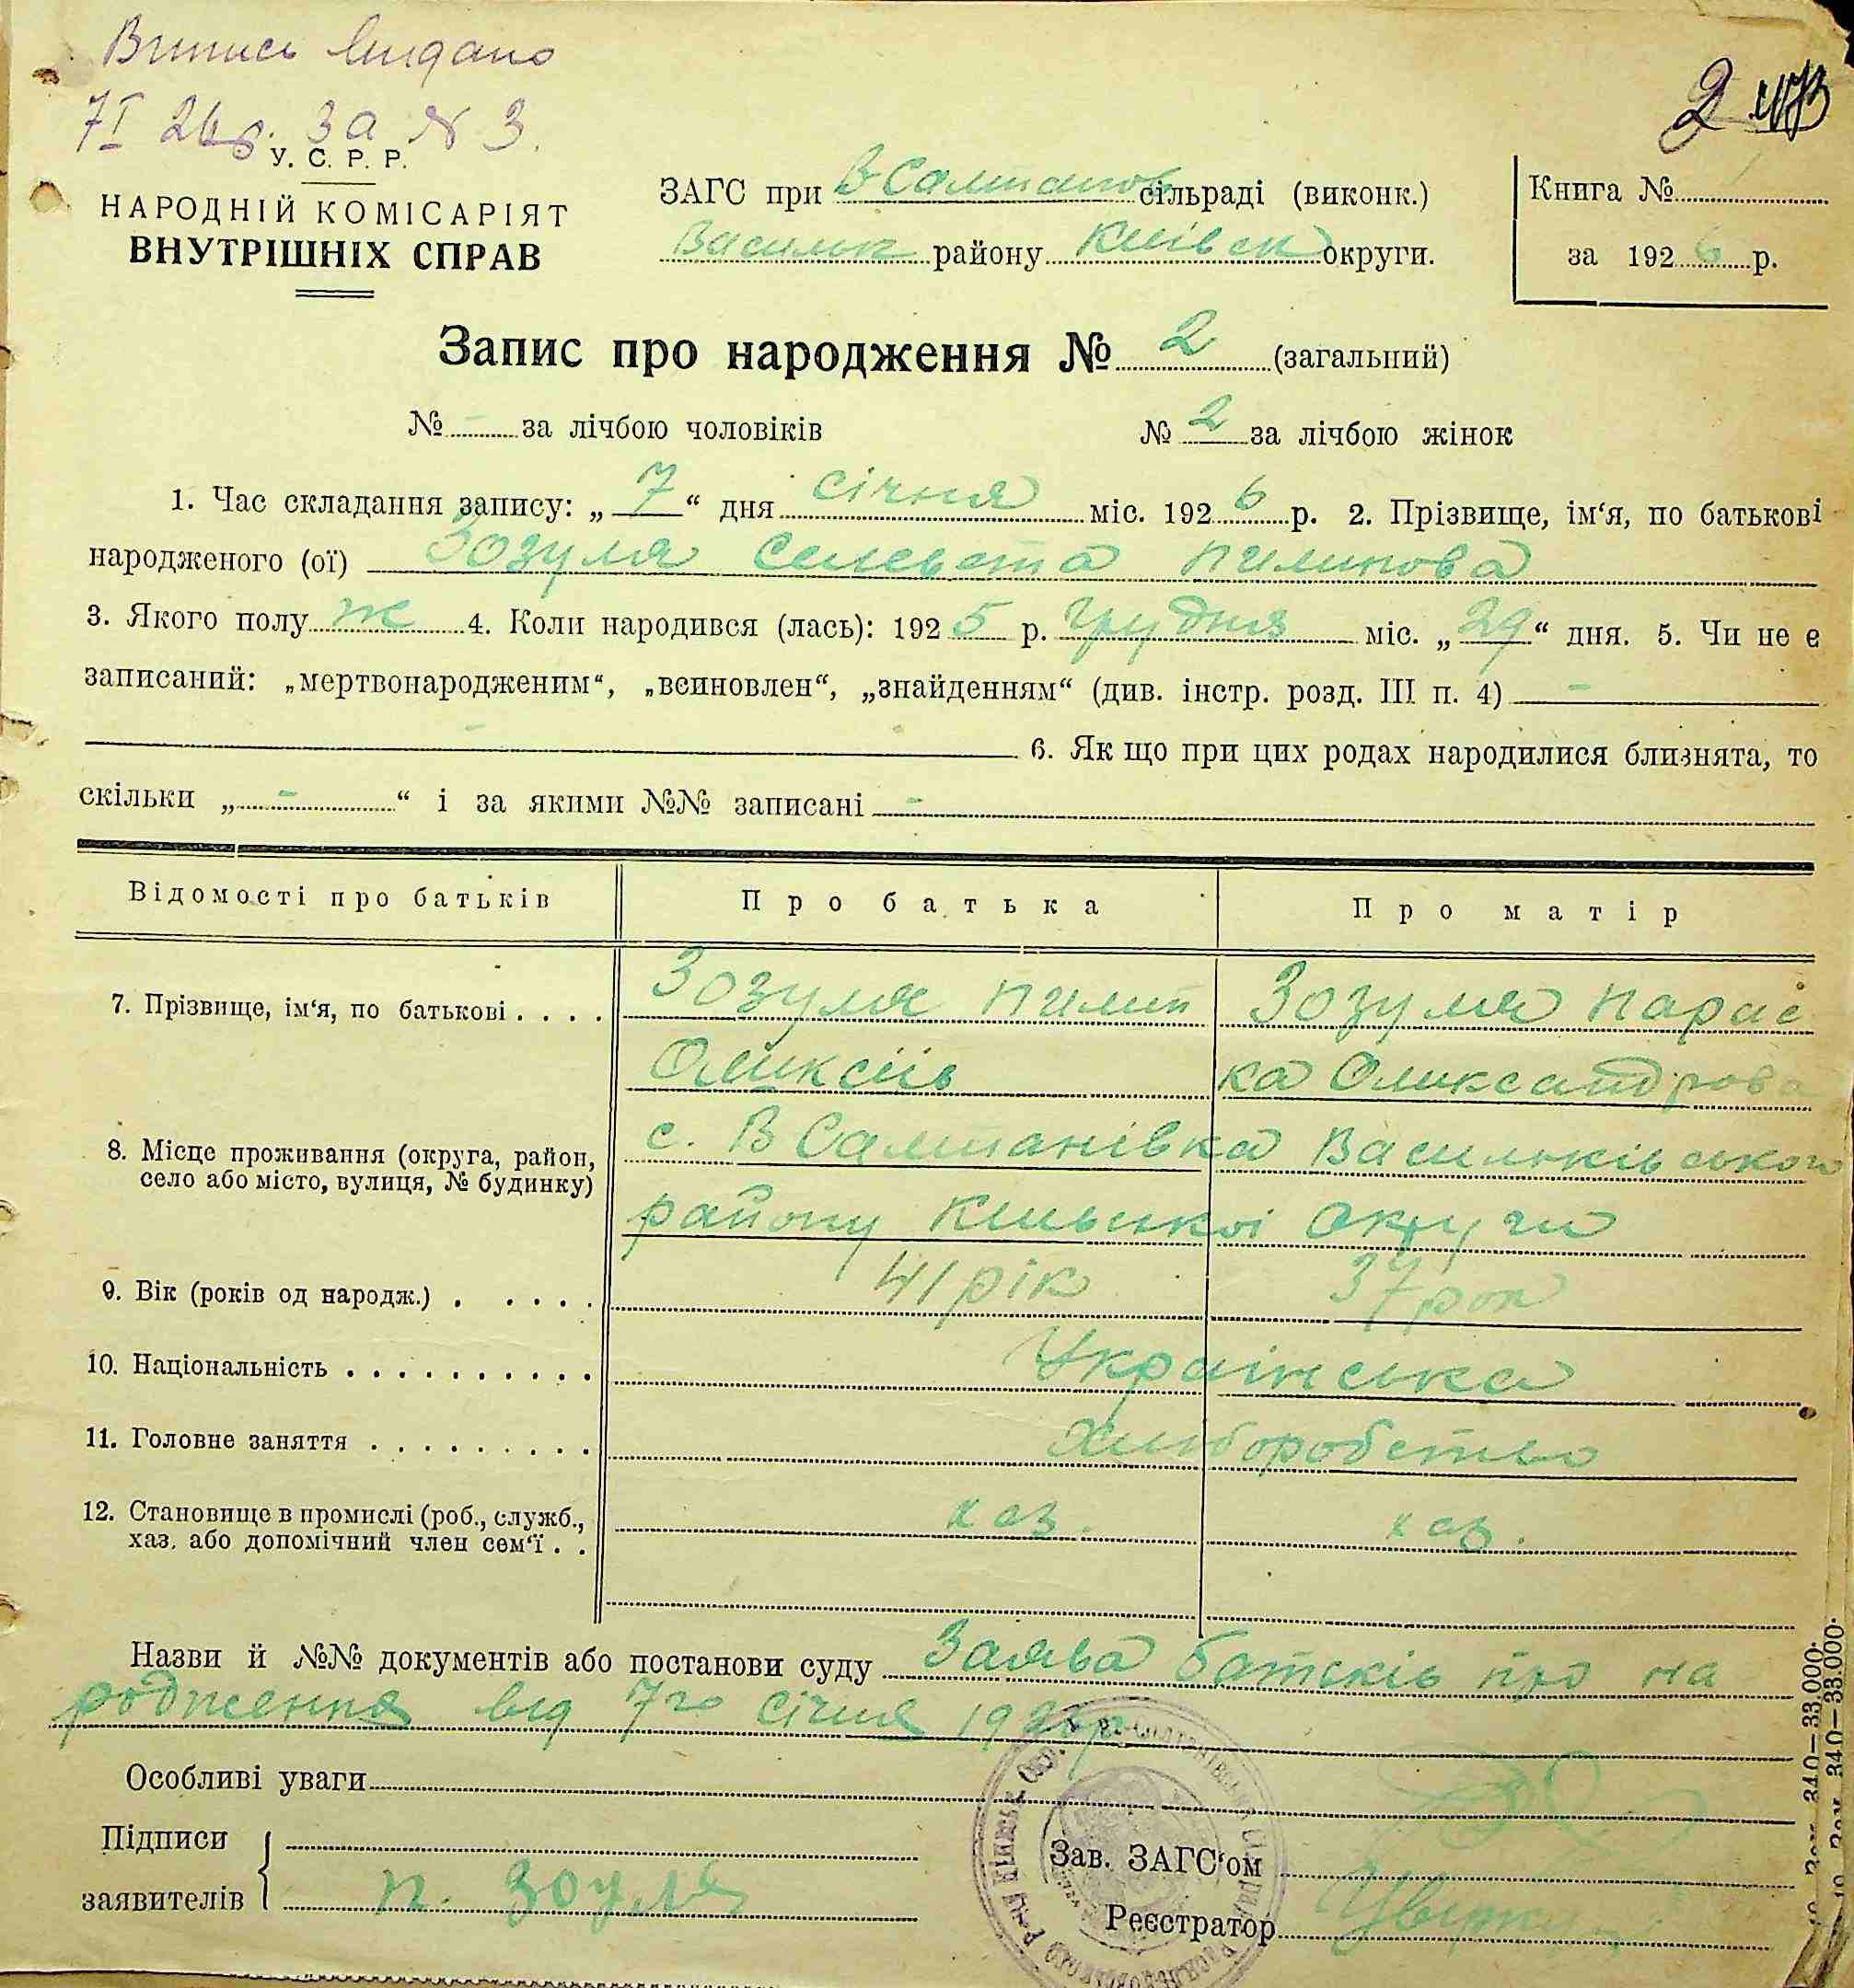 Випись видано
7 I 26 р. за № 3.
2
У. С. Р. Р.
НАРОДНІЙ КОМІСАРІЯТ
ВНУТРІШНІХ СПРАВ
ЗАГС при В-Салтанов сільраді (виконк.)
Васильк району Київськ округи.
Книга №
за 1926 р.
Запис про народження № 2 (загальний)
№ - за лічбою чоловіків № 2 за лічбою жінок
1. Час складання запису: „ 7 “ дня січня міс. 1926 р. 2. Прізвище, ім‘я, по батькові
народженого (ої) Зозуля Пилипова
3. Якого полу ж 4. Коли народився (лась): 1925 р. грудня міс. „ 29 “ дня. 5. Чи не є
записаний: „мертвонародженим“, „всиновлен“, „знайденням“ (див. інстр. розд. III п. 4) -
- 6. Як що при цих родах народилися близнята, то
скільки „ - “ і за якими №№ записані -
Відомості про батьків Про батька Про матір
7. Прізвище, ім‘я, по батькові . . . . Зозуля Пилип Зозуля Парас
Олексіїв ка Олександрова
8. Місце проживання (округа, район, с. В Салтанівка Васильківського
село або місто, вулиця, № будинку)
району Київської округи
9. Вік (років од народж.) . . . . . 41 рік 37 рок
10. Національність . . . . . . . . . . Українська
11. Головне заняття . . . . . . . . . Хліборобство
12. Становище в промислі (роб., служб., хаз. хаз.
хаз. або допомічний член сем‘ї . .
Назви й №№ документів або постанови суду Заява батьків про на
родження від 7го січня 1926 р
Особливі уваги
Підписи
заявителів П. Зозуля
Зав. ЗАГС‘ом
Реєстратор